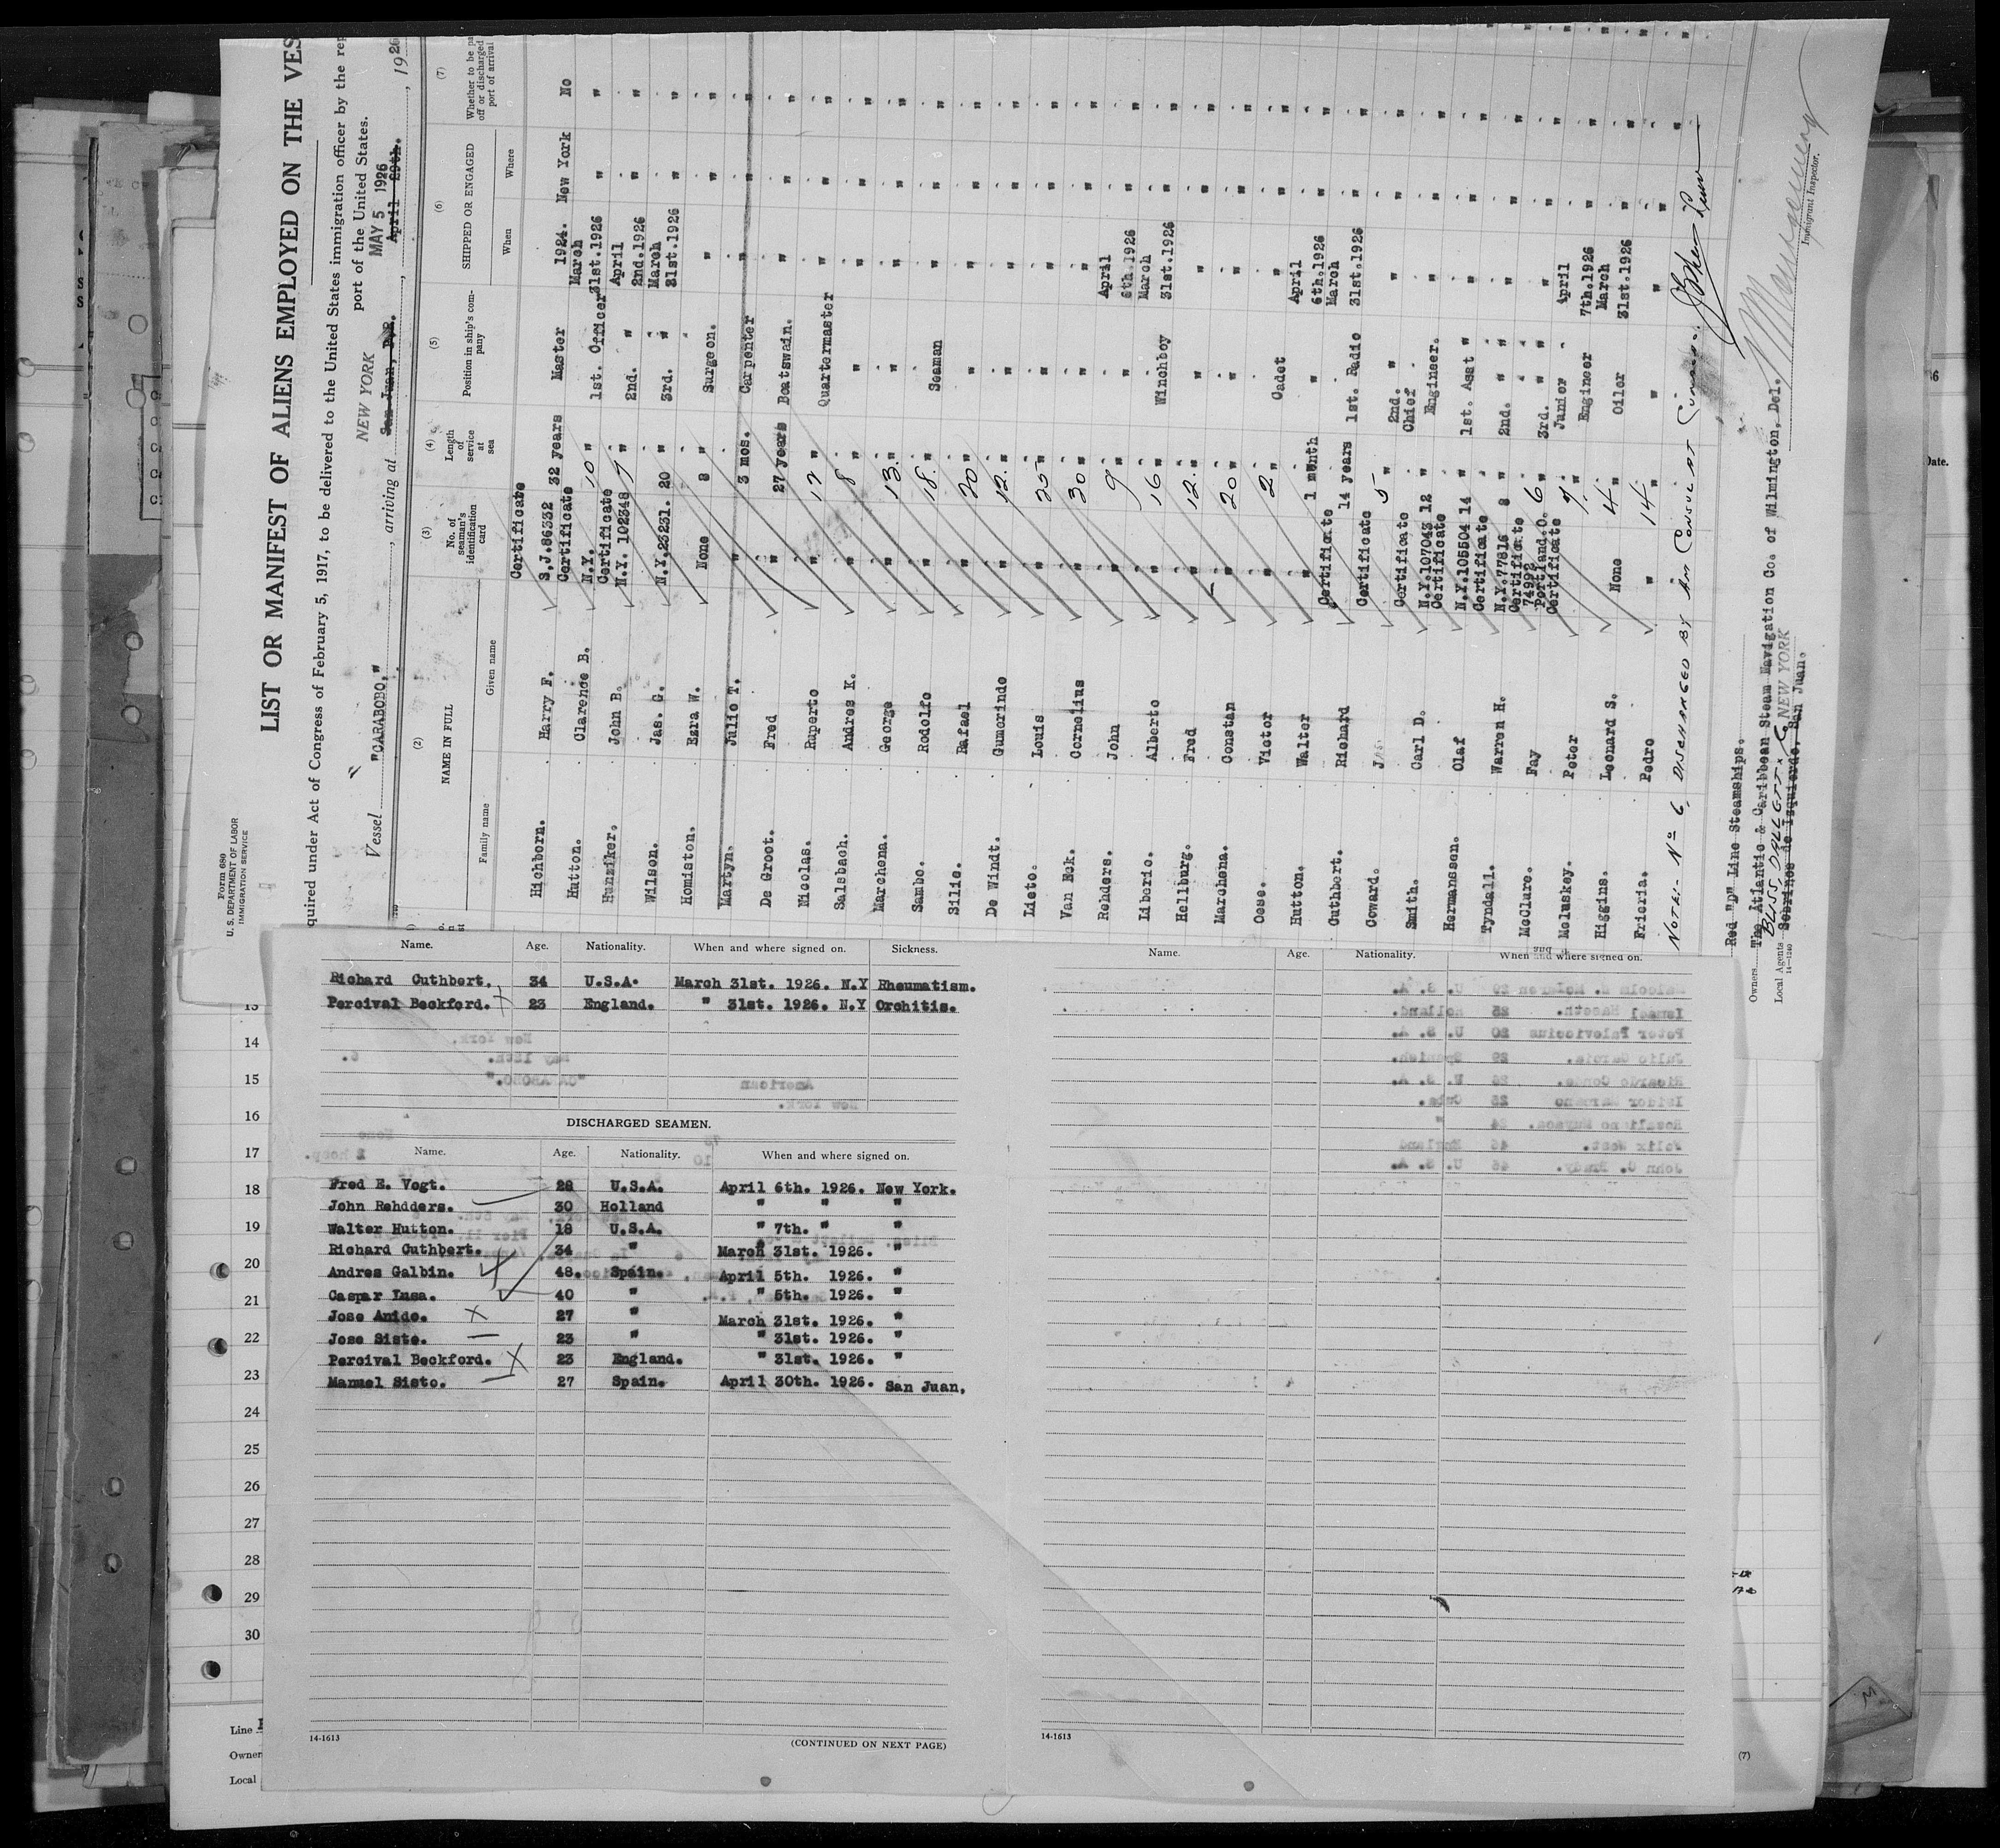 Form 680
U. S. DEPARTMENT OF LABOR
IMMIGRATION SERVICE
LIST OR MANIFEST OF ALIENS EMPLOYED ON THE VES
quired under Act of Congress of February 5, 1917, to be delivered to the United States immigration officer by the rep
port of the United States.
NEW YORK MAY 5 1926
Vessel "CARABOBO," , arriving at San Juan, P.R. , April 29th. , 1926
(2) (3) (4) (5) (6) (7)
NAME IN FULL No. of seaman's identification card Length of service at sea Position in ship's company SHIPPED OR ENGAGED Whether to be pa off or discharged port of arrival
Family name Given name When Where
Hichborn. Harry F. Certificate S.J.86332 32 years Master 1924. New York No
Hutton. Clarence B. Certificate N.Y. 10 " 1st. Officer March 31st.1926 " "
Hunziker. John B. Certificate N.Y. 102348 7 " 2nd. " April 2nd.1926 " "
Wilson. Jas. G. N.Y.23231. 20 " 3rd. " March 31st.1926 " "
Homiston. Ezra W. None 8 " Surgeon. " " "
Martyn. Julio T. " 3 mos. Carpenter " " "
De Groot. Fred " 27 years Boatswain. " " "
Nicolas. Ruperto " 12 " Quartermaster " " "
Salsbach. Andres K. " 8 " " " " "
Marchena. George " 13. " " " " "
Sambo. Rodolfo " 18. " Seaman " " "
Silie. Rafael " 20 " " " " "
De Windt. Gumerindo " 12. " " " " "
Lieto. Louis " 25 " " " " "
Van Eck. Cornelius " 30 " " " " "
Rehders. John " 9 " " April 6th.1926 " "
Liberio. Alberto " 16 " Winchboy March 31st.1926 " "
Hellburg. Fred " 12. " " " " "
Marchena. Constan " 20 " " " " "
Oese. Victor " 2 " Cadet " " "
Hutton. Walter " 1 month " April 6th.1926 " "
Cuthbert. Richard Certificate 14 years 1st. Radio March 31st.1926 " "
Coward. Certificate 5 " 2nd. " " " "
Smith. Carl D. Certificate N.Y.107043 12 " Chief Engineer. " " "
Hermanssen. Olaf Certificate N.Y.105504 14 " 1st. Asst " " " "
Tyndall. Warren H. Certificate N.Y.77816 8 " 2nd. " " " " "
McClure. Fay Certificate 74992 Portland.O. 6 " 3rd. " " " " "
McLuskey. Peter Certificate " Junior Engineer April 7th.1926 " "
Higgins. Leonard S. None 4 " Oiler March 31st.1926 " "
Frieria. Pedro " 14 " " " " "
NOTE:- No 6, DISCHARGED BY AM CONSUL AT
Red "D" Line Steamships.
Owners The Atlantic & Caribbean Steam Navigation Co. of Wilmington, Del.
BLISS DALLETT & Co NEW YORK
Local Agents Sobrinos de Izquierdo, San Juan.
14-1240
Immigrant Inspector.
Name. Age. Nationality. When and where signed on. Sickness.
Richard Cuthbert. 34 U.S.A. March 31st. 1926. N.Y Rheumatism.
Percival Beckford. 23 England. " 31st. 1926. N.Y Orchitis.
DISCHARGED SEAMEN.
Name. Age. Nationality. When and where signed on.
Fred E. Vogt. 28 U.S.A. April 6th. 1926. New York.
John Rehdders. 30 Holland " " "
Walter Hutton. 18 U.S.A. " 7th. " "
Richard Cuthbert. 34 " March 31st. 1926. "
Andres Galbin. 48. Spain. April 5th. 1926. "
Caspar Insa. 40 " " 5th. 1926. "
Jose Anido. 27 " March 31st. 1926. "
Jose Siste. 23 " " 31st. 1926. "
Percival Beckford. 23 England. " 31st. 1926. "
Manuel Sisto. 27 Spain. April 30th. 1926. San Juan,
14-1613
(CONTINUED ON NEXT PAGE)
Name. Age. Nationality. When and where signed on.
14-1613
13
14
15
16
17
18
19
20
21
22
23
24
25
26
27
28
29
30
Line
Owner
Local
(7)
Date.